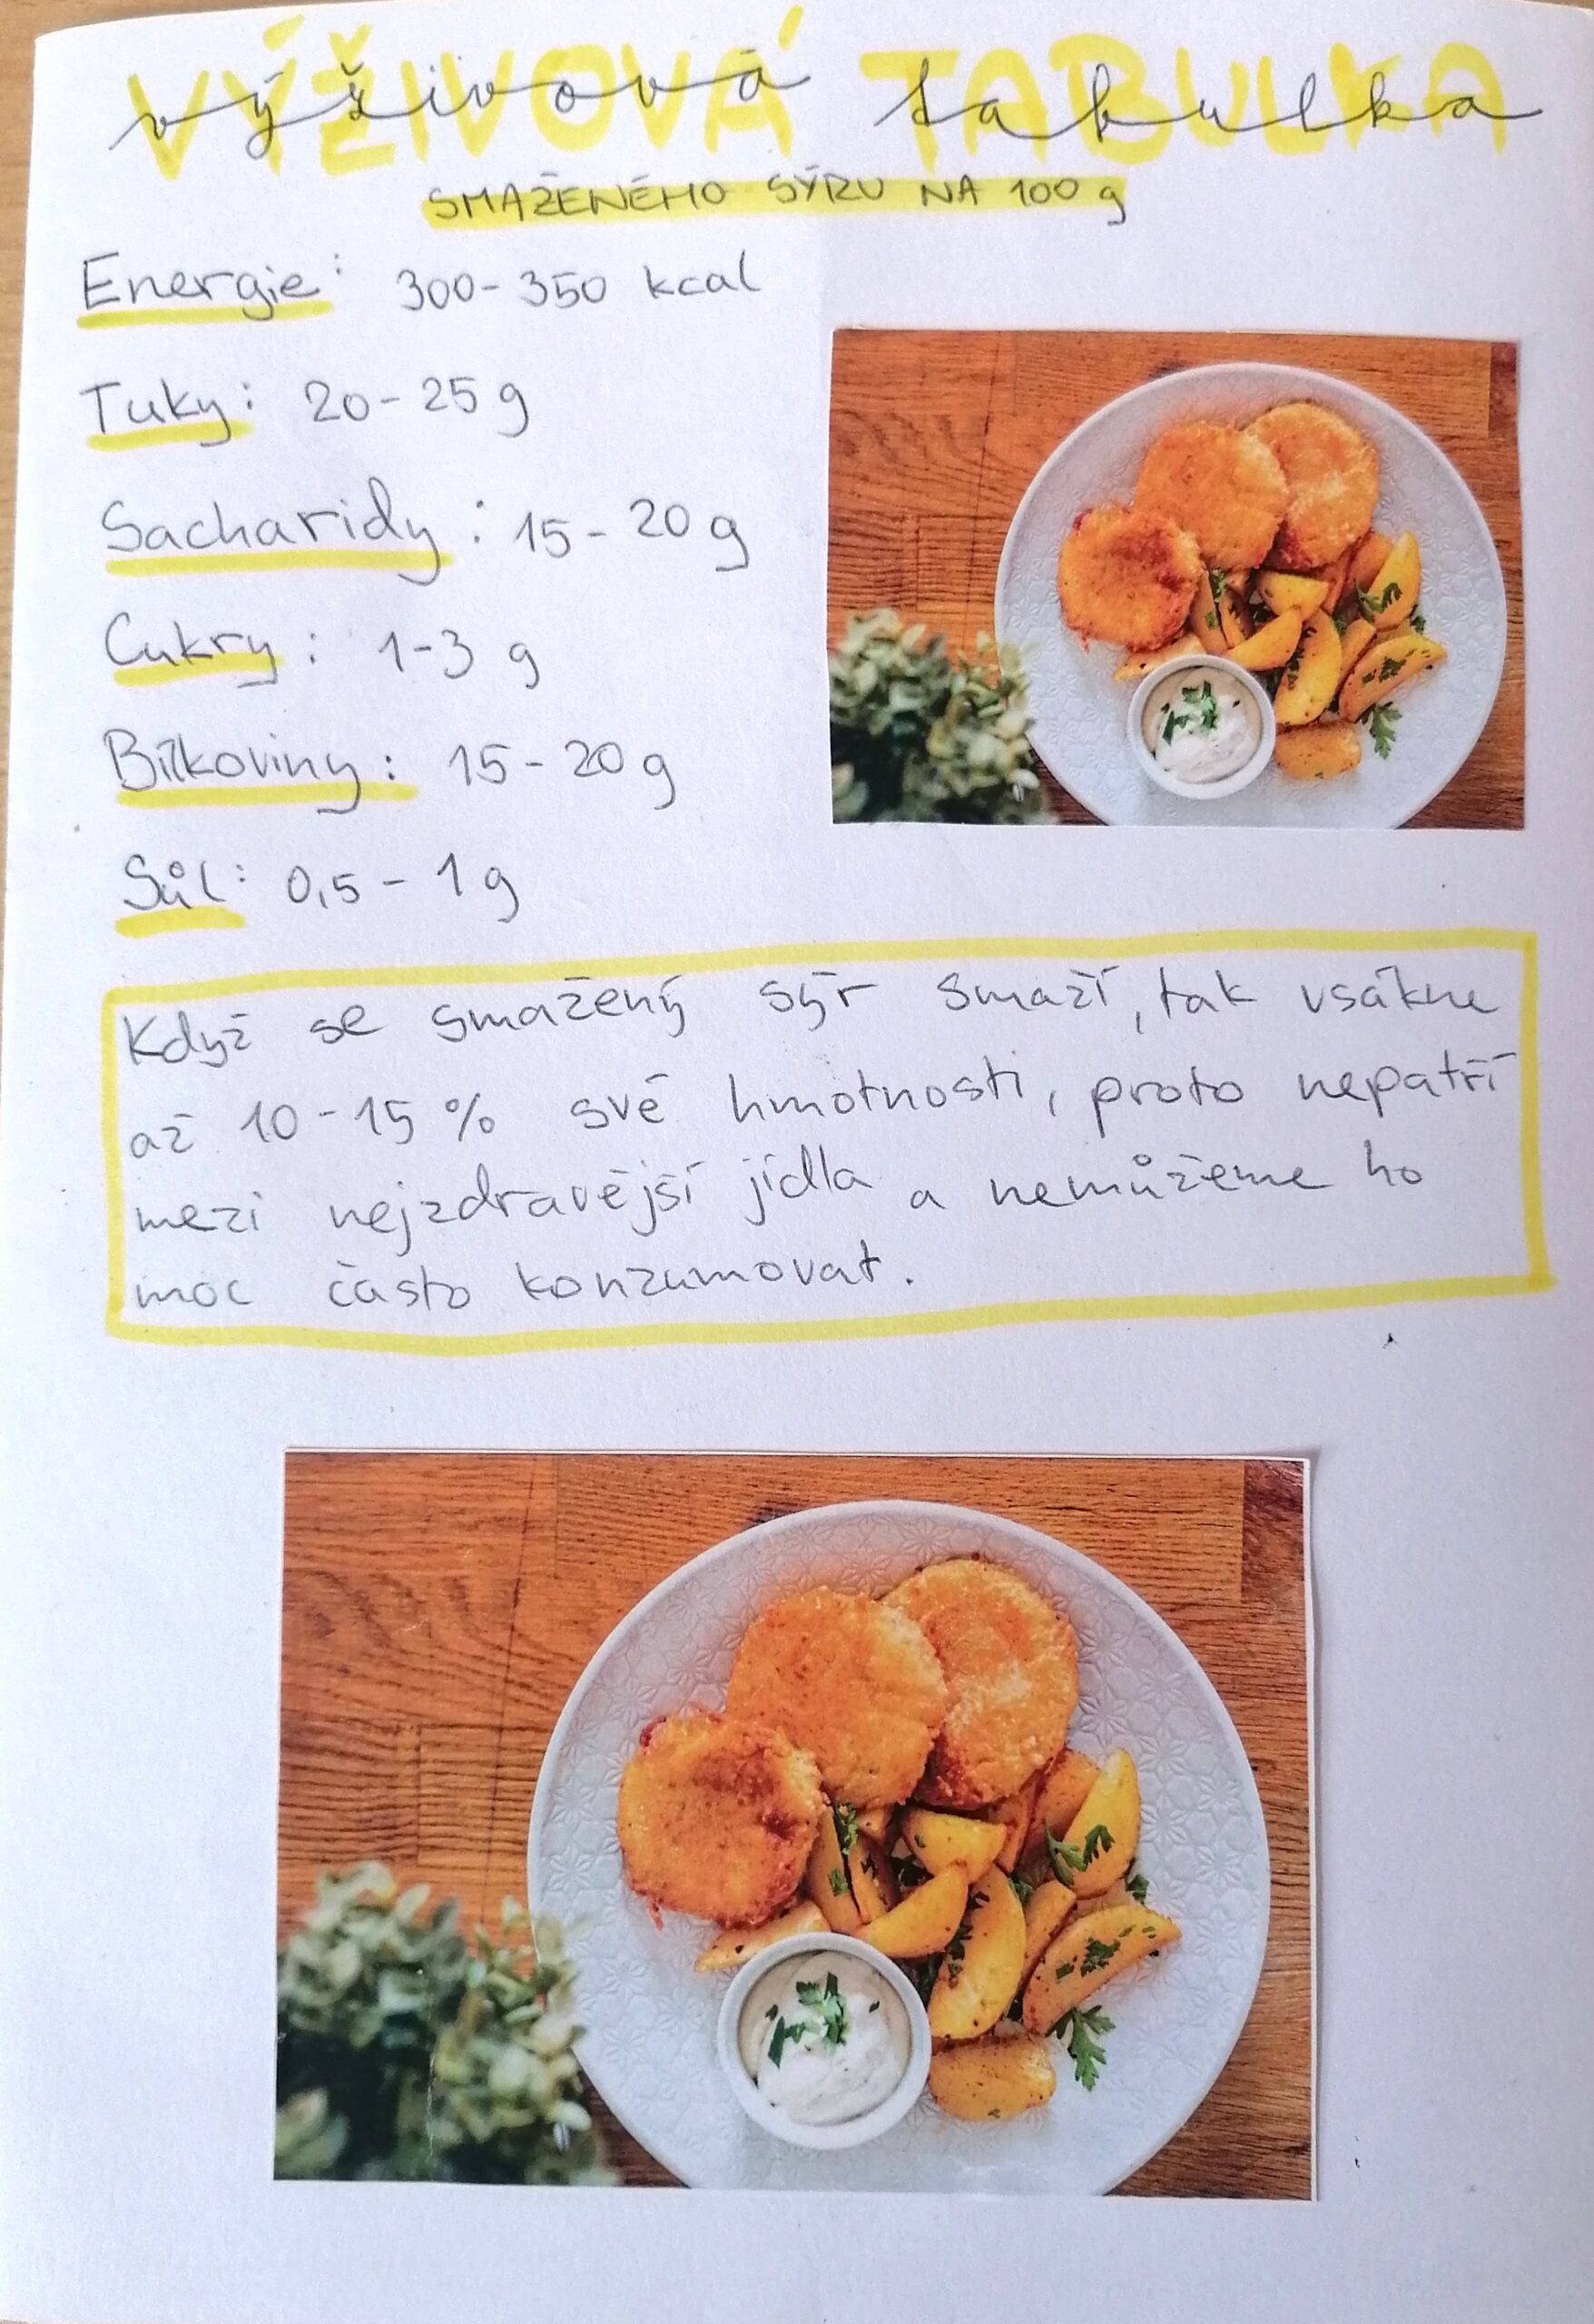 VÝŽIVOVÁ TABULKA
výživová tabulka
SMAŽENÉHO SÝRU NA 100 g
Energie: 300-350 kcal
Tuky: 20-25 g
Sacharidy: 15-20 g
Cukry: 1-3 g
Bílkoviny: 15-20 g
Sůl: 0,5-1 g
Když se smažený sýr smaží, tak vsákne
až 10-15 % své hmotnosti, proto nepatří
mezi nejzdravější jídla a nemůžeme ho
moc často konzumovat.